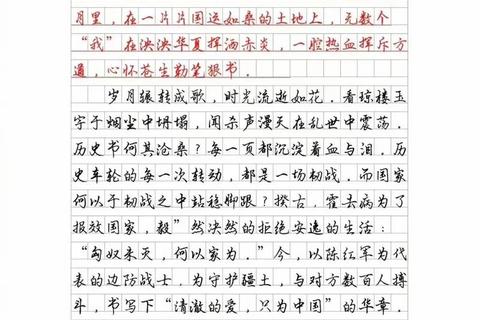 月里，在一片片国运如桑的土地上，无数个
“我”在泱泱华夏挥洒赤炎，一腔热血挥斥方
遒，心怀苍生勤笔狠书．
岁月辗转成歌，时光流逝如花．看琼楼玉
宇于烟尘中坍塌，闻杀声漫天在乱世中震荡．
历史书何其沧桑？每一页都沉淀着血与泪．历
史车轮的每一次转动，都是一场韧战．而国家
何以于韧战之中站稳脚跟？揆古，霍去病为了
报效国家，毅”然决然的拒绝安逸的生活：
“匈奴未灭，何以家为．”今，以陈红军为代
表的边防战士，为守护疆土，与对方数百人搏
斗，书写下“清澈的爱，只为中国”的华章．